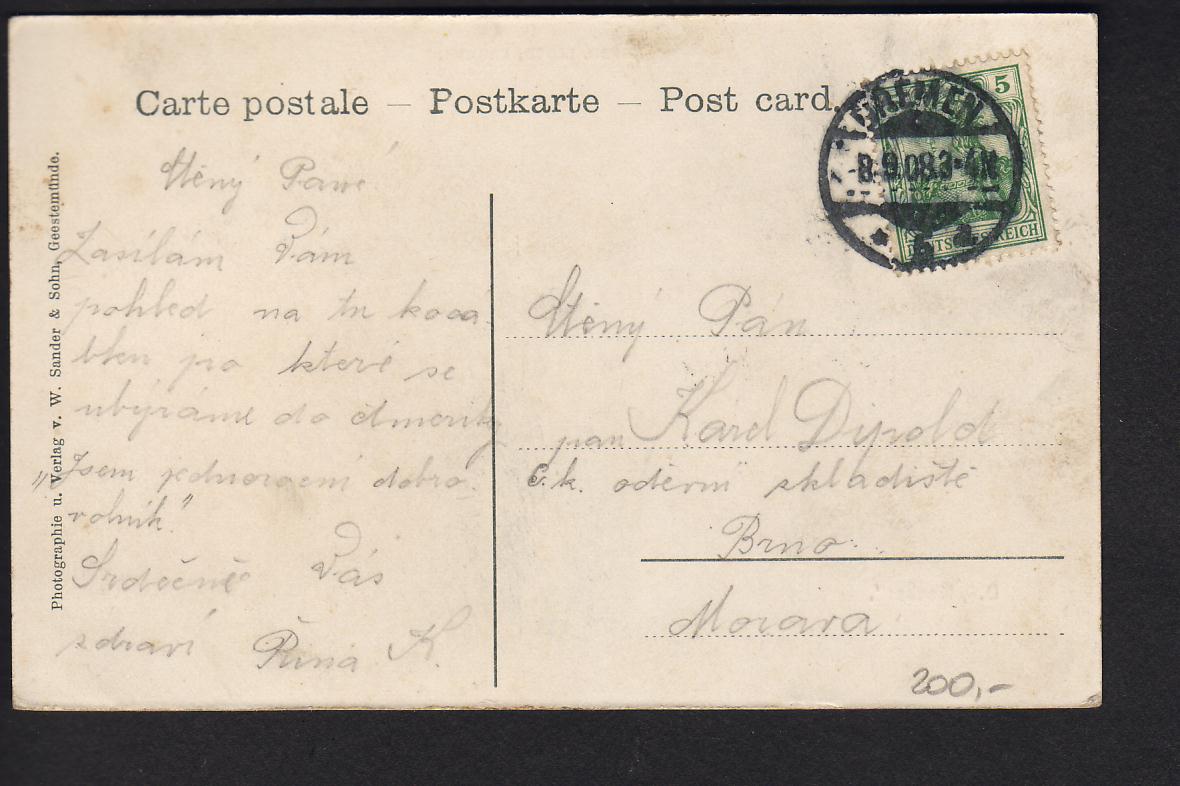 Carte postale — Postkarte — Post card.
5
BREMEN
8.9.08.3-4N
DEUTSCHES REICH
Photographie u. Verlag v. W. Sander & Sohn, Geestemünde.
Ctěný Pane
Zasílám Vám
pohled na tu korá-
blu po které se
ubýráme do Ameriky
„Jsem jednoroční dobro-
volník."
Srdečně Vás
zdraví Říha K.
Ctěný Pán
pan Karel Dipold
c. k. oděvní skladiště
Brno
Morava
200,-